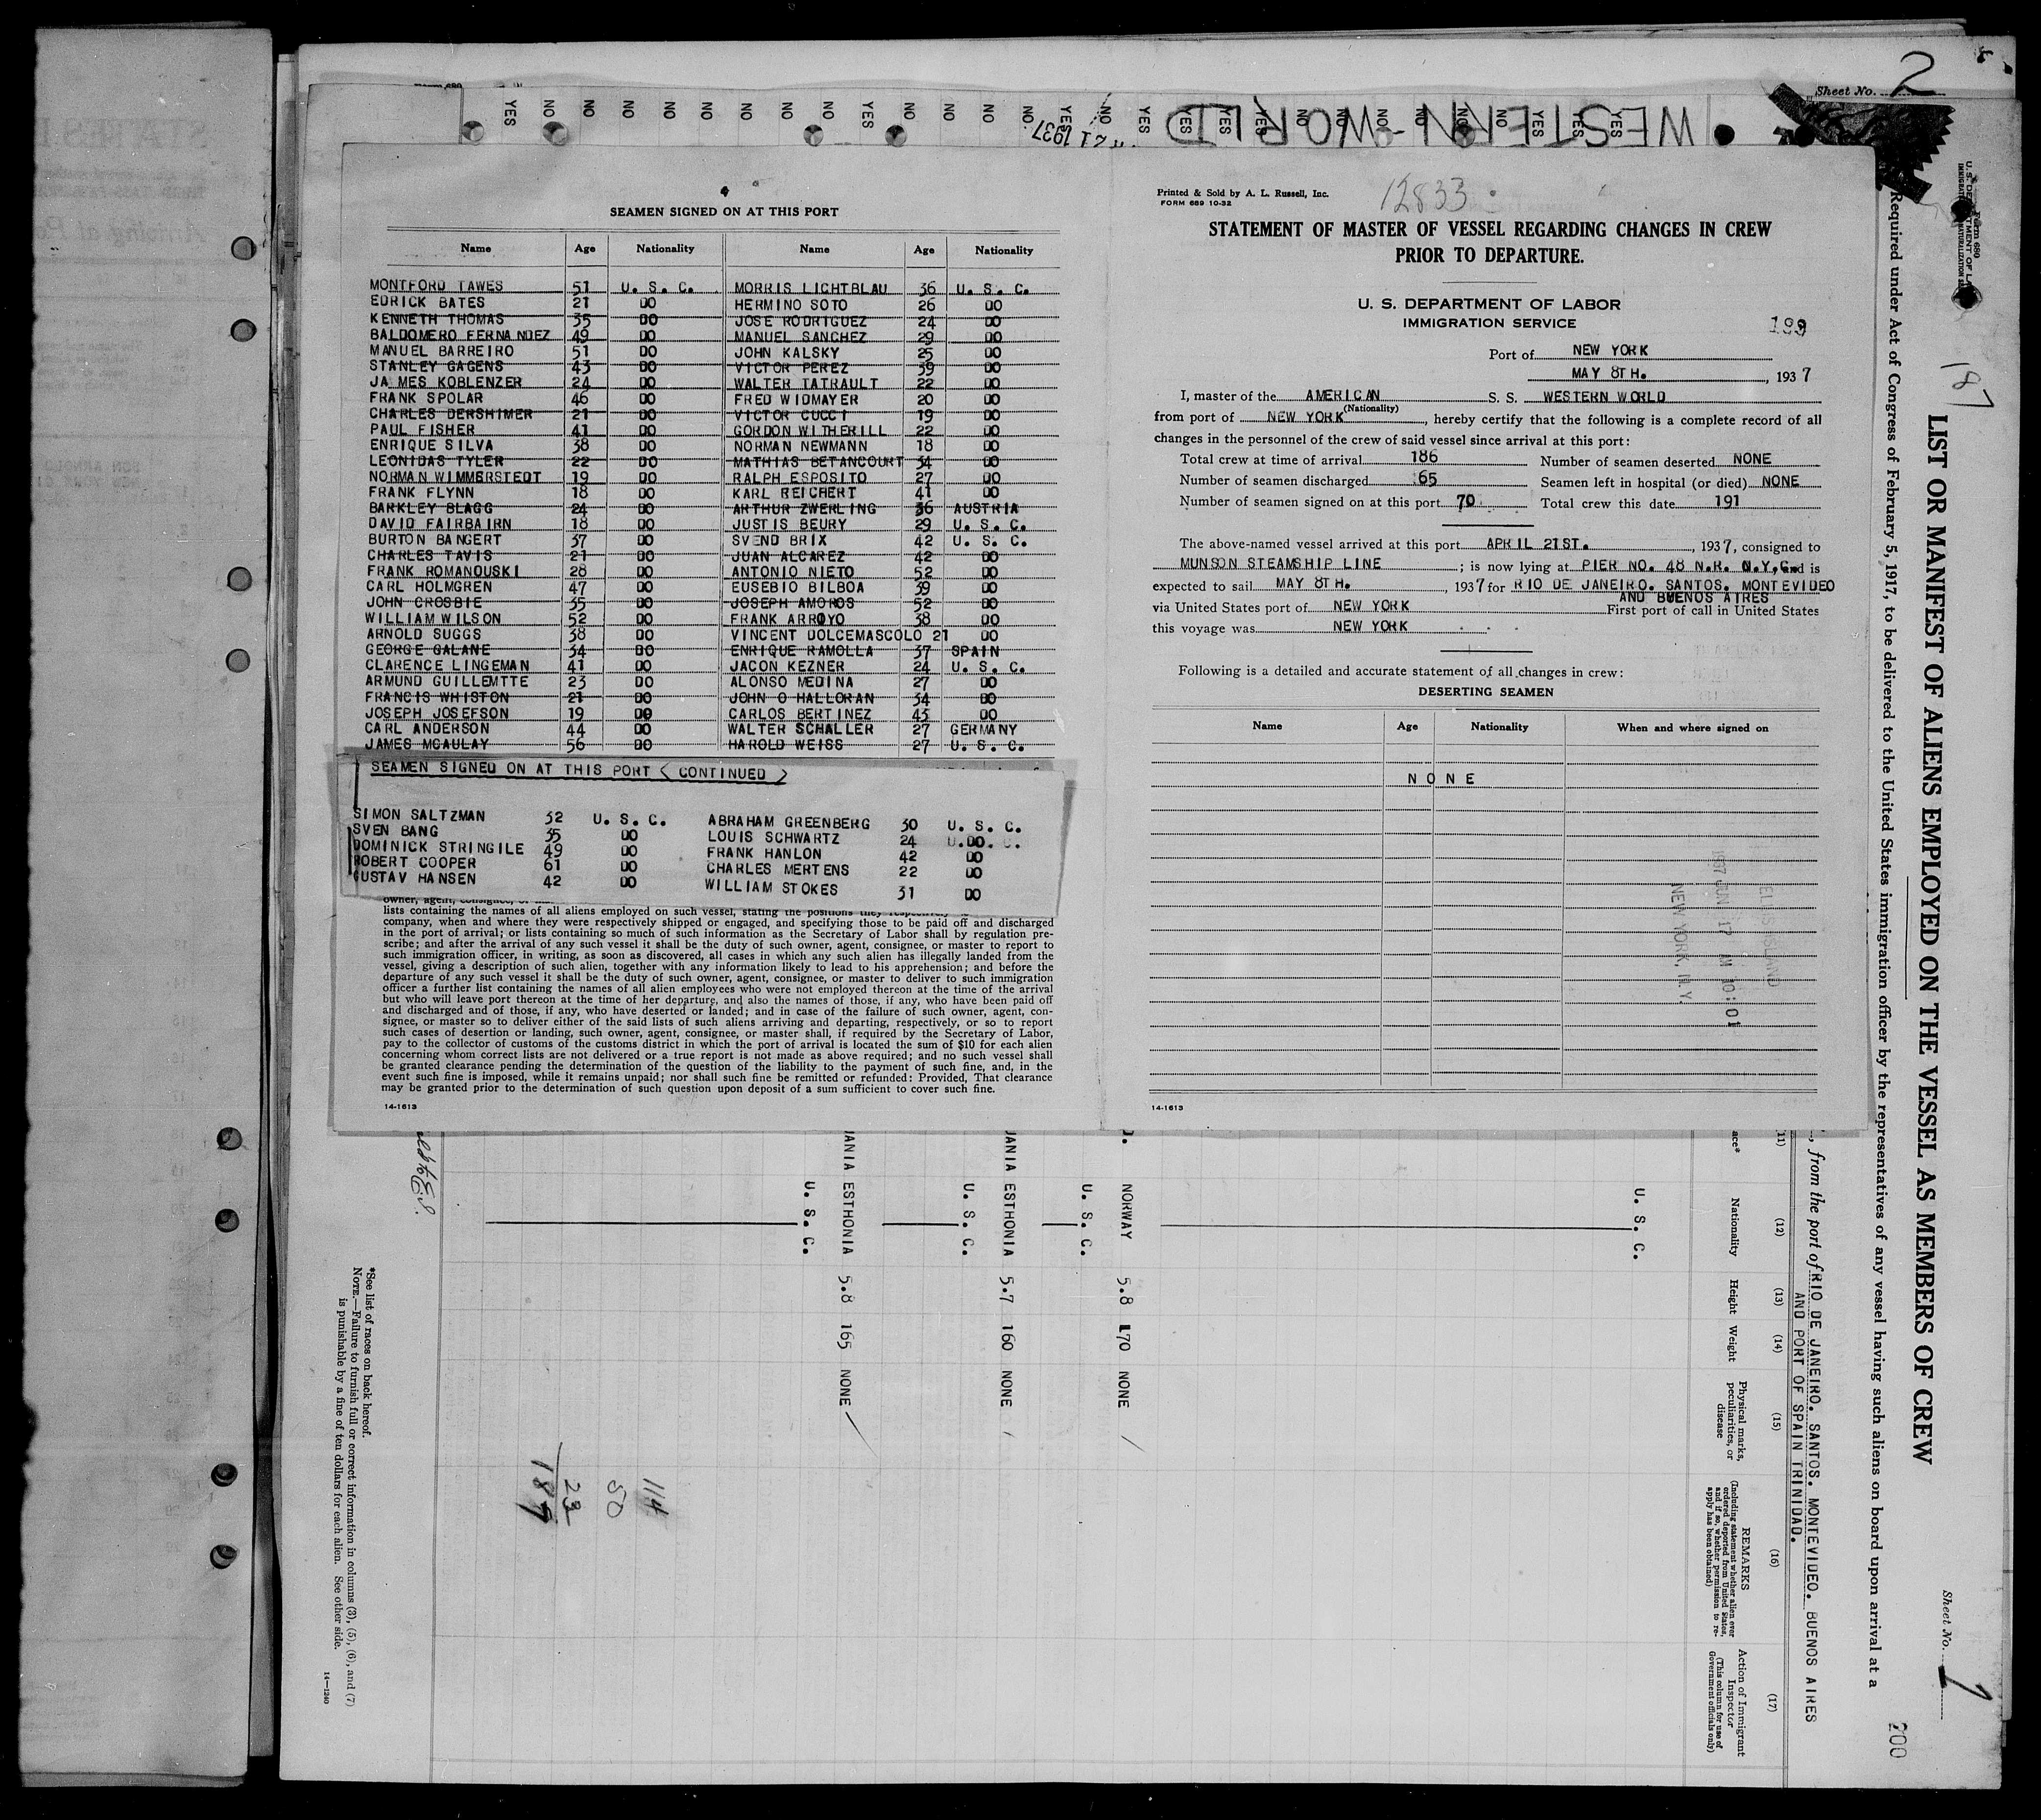 Sheet No. 2
YES NO NO NO NO NO NO NO NO YES NO NO NO NO YES NO YES YES YES YES NO NO NO NO NO YES YES YES
WESTERN-WORLD
21 1937
SEAMEN SIGNED ON AT THIS PORT
Name Age Nationality Name Age Nationality
MONTFORD TAWES 51 U. S. C. MORRIS LICHTBLAU 36 U. S. C.
EDRICK BATES 21 DO HERMINO SOTO 26 DO
KENNETH THOMAS 35 DO JOSE RODRIGUEZ 24 DO
BALDOMERO FERNANDEZ 49 DO MANUEL SANCHEZ 29 DO
MANUEL BARREIRO 51 DO JOHN KALSKY 25 DO
STANLEY GAGENS 43 DO VICTOR PEREZ 39 DO
JAMES KOBLENZER 24 DO WALTER TATRAULT 22 DO
FRANK SPOLAR 46 DO FRED WIDMAYER 20 DO
CHARLES DERSHIMER 21 DO VICTOR CUCCI 19 DO
PAUL FISHER 41 DO GORDON WITHERILL 22 DO
ENRIQUE SILVA 38 DO NORMAN NEWMANN 18 DO
LEONIDAS TYLER 22 DO MATHIAS BETANCOURT 34 DO
NORMAN WIMMERSTEDT 19 DO RALPH ESPOSITO 27 DO
FRANK FLYNN 18 DO KARL REICHERT 41 DO
BARKLEY BLAGG 24 DO ARTHUR ZWERLING 36 AUSTRIA
DAVID FAIRBAIRN 18 DO JUSTIS BEURY 29 U. S. C.
BURTON BANGERT 37 DO SVEND BRIX 42 U. S. C.
CHARLES TAVIS 21 DO JUAN ALCAREZ 42 DO
FRANK ROMANOUSKI 28 DO ANTONIO NIETO 52 DO
CARL HOLMGREN 47 DO EUSEBIO BILBOA 39 DO
JOHN CROSBIE 35 DO JOSEPH AMOROS 52 DO
WILLIAM WILSON 52 DO FRANK ARROYO 38 DO
ARNOLD SUGGS 38 DO VINCENT DOLCEMASCOLO 21 DO
GEORGE GALANE 34 DO ENRIQUE RAMOLLA 37 SPAIN
CLARENCE LINGEMAN 41 DO JACON KEZNER 24 U. S. C.
ARMUND GUILLEMTTE 23 DO ALONSO MEDINA 27 DO
FRANCIS WHISTON 21 DO JOHN O HALLORAN 34 DO
JOSEPH JOSEFSON 19 DO CARLOS BERTINEZ 43 DO
CARL ANDERSON 44 DO WALTER SCHALLER 27 GERMANY
JAMES MCAULAY 56 DO HAROLD WEISS 27 U. S. C.
SEAMEN SIGNED ON AT THIS PORT ( CONTINUED )
SIMON SALTZMAN 32 U. S. C. ABRAHAM GREENBERG 30 U. S. C.
SVEN BANG 35 DO LOUIS SCHWARTZ 24 DO
DOMINICK STRINGILE 49 DO FRANK HANLON 42 DO
ROBERT COOPER 61 DO CHARLES MERTENS 22 DO
GUSTAV HANSEN 42 DO WILLIAM STOKES 31 DO
owner, agent, consignee, or
lists containing the names of all aliens employed on such vessel, stating the positions they respectively
company, when and where they were respectively shipped or engaged, and specifying those to be paid off and discharged
in the port of arrival; or lists containing so much of such information as the Secretary of Labor shall by regulation pre-
scribe; and after the arrival of any such vessel it shall be the duty of such owner, agent, consignee, or master to report to
such immigration officer, in writing, as soon as discovered, all cases in which any such alien has illegally landed from the
vessel, giving a description of such alien, together with any information likely to lead to his apprehension; and before the
departure of any such vessel it shall be the duty of such owner, agent, consignee, or master to deliver to such immigration
officer a further list containing the names of all alien employees who were not employed thereon at the time of the arrival
but who will leave port thereon at the time of her departure, and also the names of those, if any, who have been paid off
and discharged and of those, if any, who have deserted or landed; and in case of the failure of such owner, agent, con-
signee, or master so to deliver either of the said lists of such aliens arriving and departing, respectively, or so to report
such cases of desertion or landing, such owner, agent, consignee, or master shall, if required by the Secretary of Labor,
pay to the collector of customs of the customs district in which the port of arrival is located the sum of $10 for each alien
concerning whom correct lists are not delivered or a true report is not made as above required; and no such vessel shall
be granted clearance pending the determination of the question of the liability to the payment of such fine, and, in the
event such fine is imposed, while it remains unpaid; nor shall such fine be remitted or refunded: Provided, That clearance
may be granted prior to the determination of such question upon deposit of a sum sufficient to cover such fine.
14-1613
Printed & Sold by A. L. Russell, Inc.
FORM 689 10-32
12833
STATEMENT OF MASTER OF VESSEL REGARDING CHANGES IN CREW
PRIOR TO DEPARTURE.
U. S. DEPARTMENT OF LABOR
IMMIGRATION SERVICE
199
Port of NEW YORK
MAY 8TH. , 1937
I, master of the AMERICAN S. S. WESTERN WORLD
(Nationality)
from port of NEW YORK , hereby certify that the following is a complete record of all
changes in the personnel of the crew of said vessel since arrival at this port:
Total crew at time of arrival 186 Number of seamen deserted NONE
Number of seamen discharged 65 Seamen left in hospital (or died) NONE
Number of seamen signed on at this port 70 Total crew this date 191
The above-named vessel arrived at this port APRIL 21ST. , 1937, consigned to
MUNSON STEAMSHIP LINE ; is now lying at PIER NO. 48 N.R. N.Y.C. and is
expected to sail MAY 8TH. , 1937 for RIO DE JANEIRO. SANTOS. MONTEVIDEO
AND BUENOS AIRES
via United States port of NEW YORK First port of call in United States
this voyage was NEW YORK
Following is a detailed and accurate statement of all changes in crew:
DESERTING SEAMEN
Name Age Nationality When and where signed on
NONE
ELLIS ISLAND
1937 JUN 17 AM 10:01
NEW YORK, N.Y.
14-1613
Form 680
U. S. DEPARTMENT OF LABOR
187
LIST OR MANIFEST OF ALIENS EMPLOYED ON THE VESSEL AS MEMBERS OF CREW
Sheet No. 1
200
Required under Act of Congress of February 5, 1917, to be delivered to the United States immigration officer by the representatives of any vessel having such aliens on board upon arrival at a
, from the port of RIO DE JANEIRO. SANTOS. MONTEVIDEO. BUENOS AIRES
AND PORT OF SPAIN TRINIDAD.
(11) (12) (13) (14) (15) (16) (17)
Nationality
Height
Weight
Physical marks, peculiarities, or disease
REMARKS
(Including statement whether alien ever ordered deported from United States, and if so, whether permission to re-apply has been obtained)
Action of Immigrant Inspector
(This column for use of Government officials only)
U. S. C.
NORWAY 5.8 170 NONE
U. S. C.
ESTHONIA 5.7 160 NONE
U. S. C.
ESTHONIA 5.8 165 NONE
U. S. C.
114
50
23
187
*See list of races on back hereof.
NOTE.—Failure to furnish full or correct information in columns (3), (5), (6), and (7)
is punishable by a fine of ten dollars for each alien. See other side.
14—1240